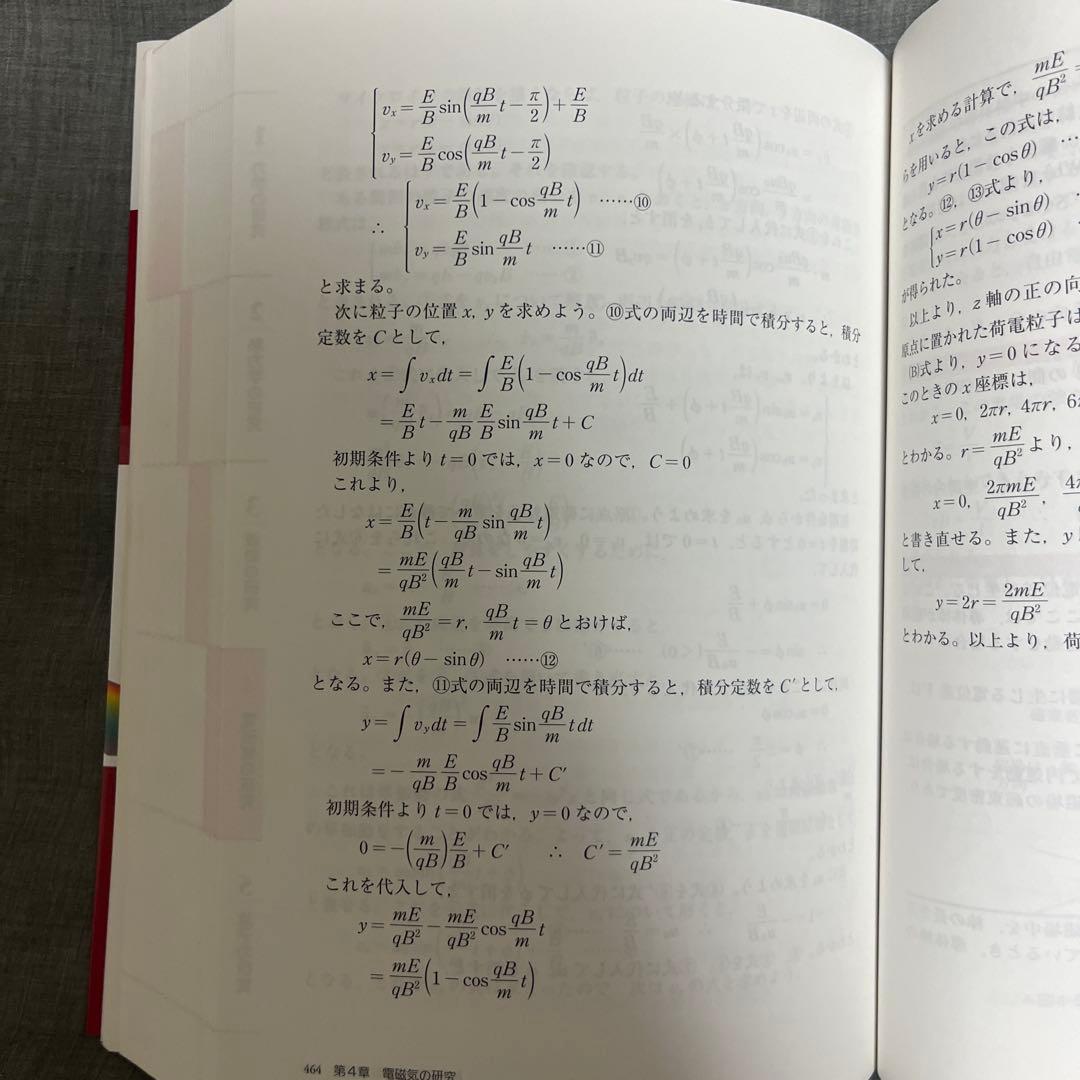 v_x = E/B sin(qB/m t − π/2) + E/B
v_y = E/B cos(qB/m t − π/2)
∴ v_x = E/B (1 − cos qB/m t) ……⑩
v_y = E/B sin qB/m t ……⑪
と求まる。
次に粒子の位置 x, y を求めよう。⑩式の両辺を時間で積分すると，積分
定数を C として，
x = ∫ v_x dt = ∫ E/B (1 − cos qB/m t) dt
= E/B t − m/qB E/B sin qB/m t + C
初期条件より t = 0 では，x = 0 なので，C = 0
これより，
x = E/B (t − m/qB sin qB/m t)
= mE/qB² (qB/m t − sin qB/m t)
ここで，mE/qB² = r, qB/m t = θ とおけば，
x = r(θ − sin θ) ……⑫
となる。また，⑪式の両辺を時間で積分すると，積分定数を C′ として，
y = ∫ v_y dt = ∫ E/B sin qB/m t dt
= − m/qB E/B cos qB/m t + C′
初期条件より t = 0 では，y = 0 なので，
0 = −(m/qB) E/B + C′ ∴ C′ = mE/qB²
これを代入して，
y = mE/qB² − mE/qB² cos qB/m t
= mE/qB² (1 − cos qB/m t)
464 第4章 電磁気の研究
x を求める計算で，mE/qB² =
らを用いると，この式は，
y = r(1 − cos θ) …
となる。⑫，⑬式より，
x = r(θ − sin θ)
y = r(1 − cos θ)
が得られた。
以上より，z 軸の正の向
原点に置かれた荷電粒子は
(B)式より，y = 0 になる
このときの x 座標は，
x = 0, 2πr, 4πr, 6
とわかる。r = mE/qB² より，
x = 0, 2πmE/qB²,
と書き直せる。また，y
して，
y = 2r = 2mE/qB²
とわかる。以上より，荷